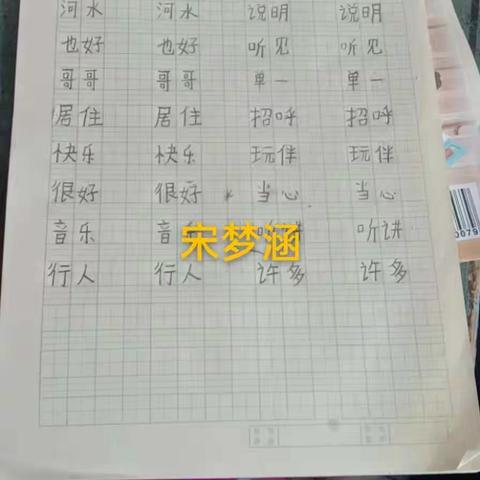 河水 河水 说明 说明
也好 也好 听见 听见
哥哥 哥哥 单一 单一
居住 居住 招呼 招呼
快乐 快乐 玩伴 玩伴
很好 很好 当心 当心
音乐 音乐 听讲 听讲
宋梦涵
行人 行人 许多 许多
0079